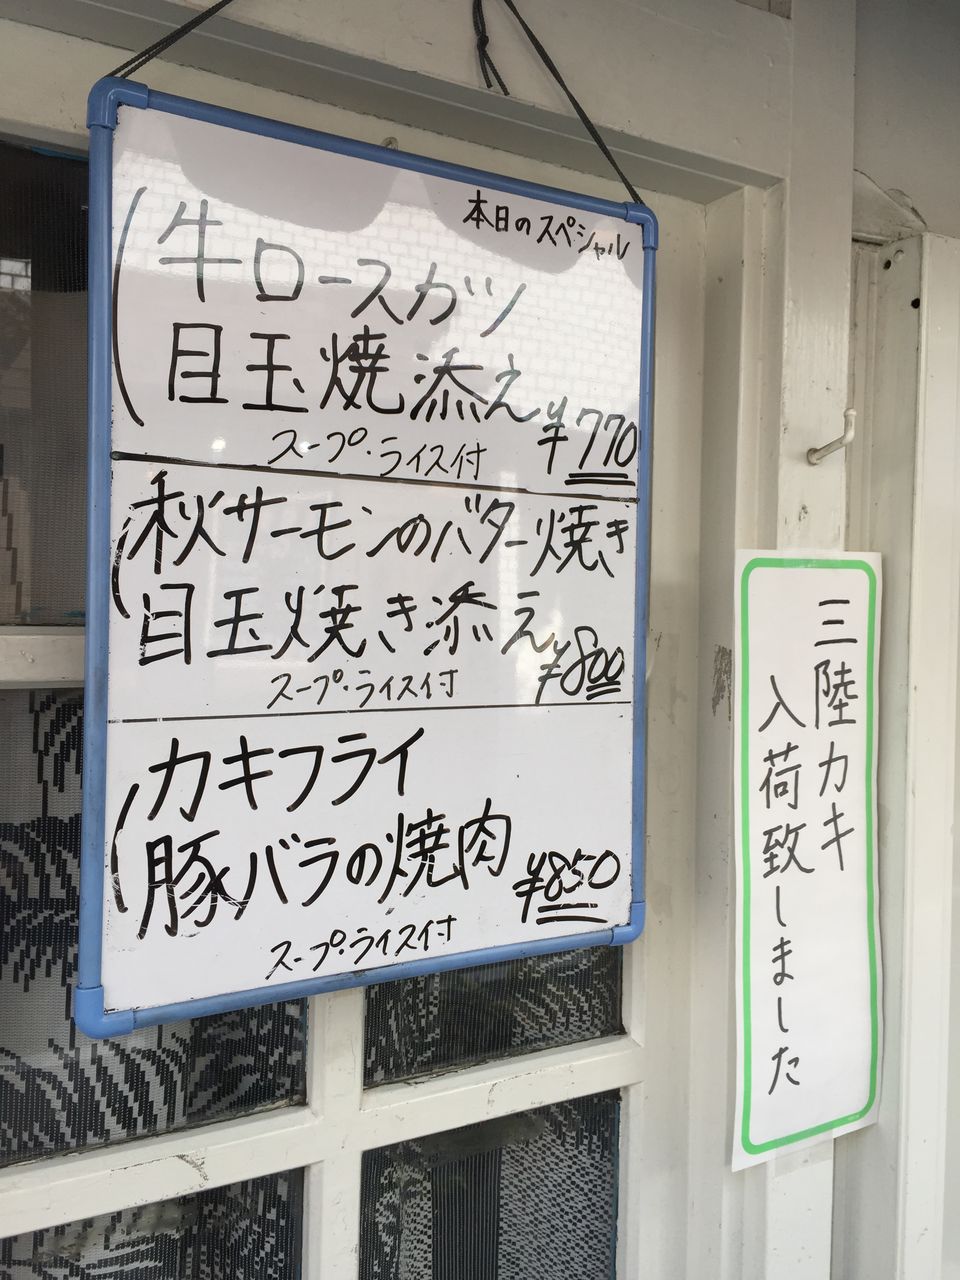 本日のスペシャル
牛ロースカツ
目玉焼添え
¥770
スープ・ライス付
秋サーモンのバター焼き
目玉焼き添え
¥800
スープ・ライス付
カキフライ
豚バラの焼肉
¥850
スープ・ライス付
三陸カキ
入荷致しました